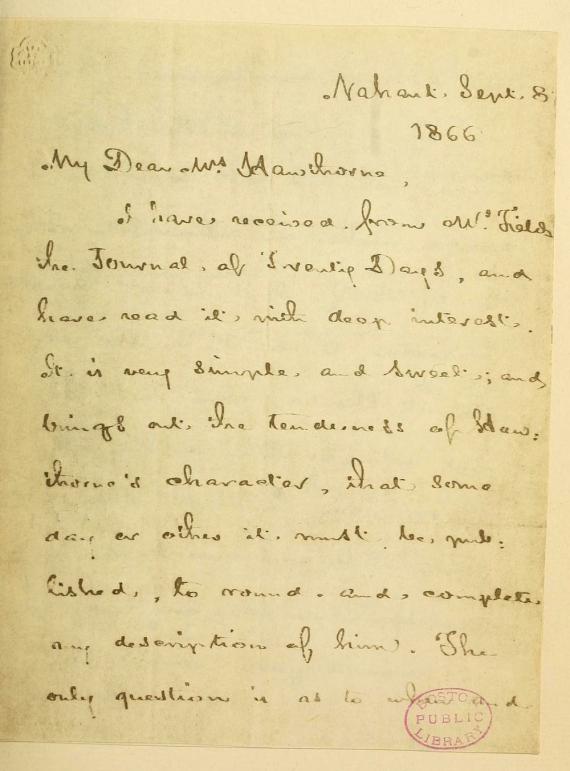 Nahant. Sept. 8
1866
My Dear Mrs Hawthorne,
I have received from Mrs. Fields
the Journal of Twenty Days, and
have read it with deep interest.
It is very simple and sweet; and
brings out the tenderness of Haw:
thorne's character, that some
day or other it must be pub:
lished, to round and complete
any description of him. The
only question is as to when and
BOSTON
PUBLIC
LIBRARY